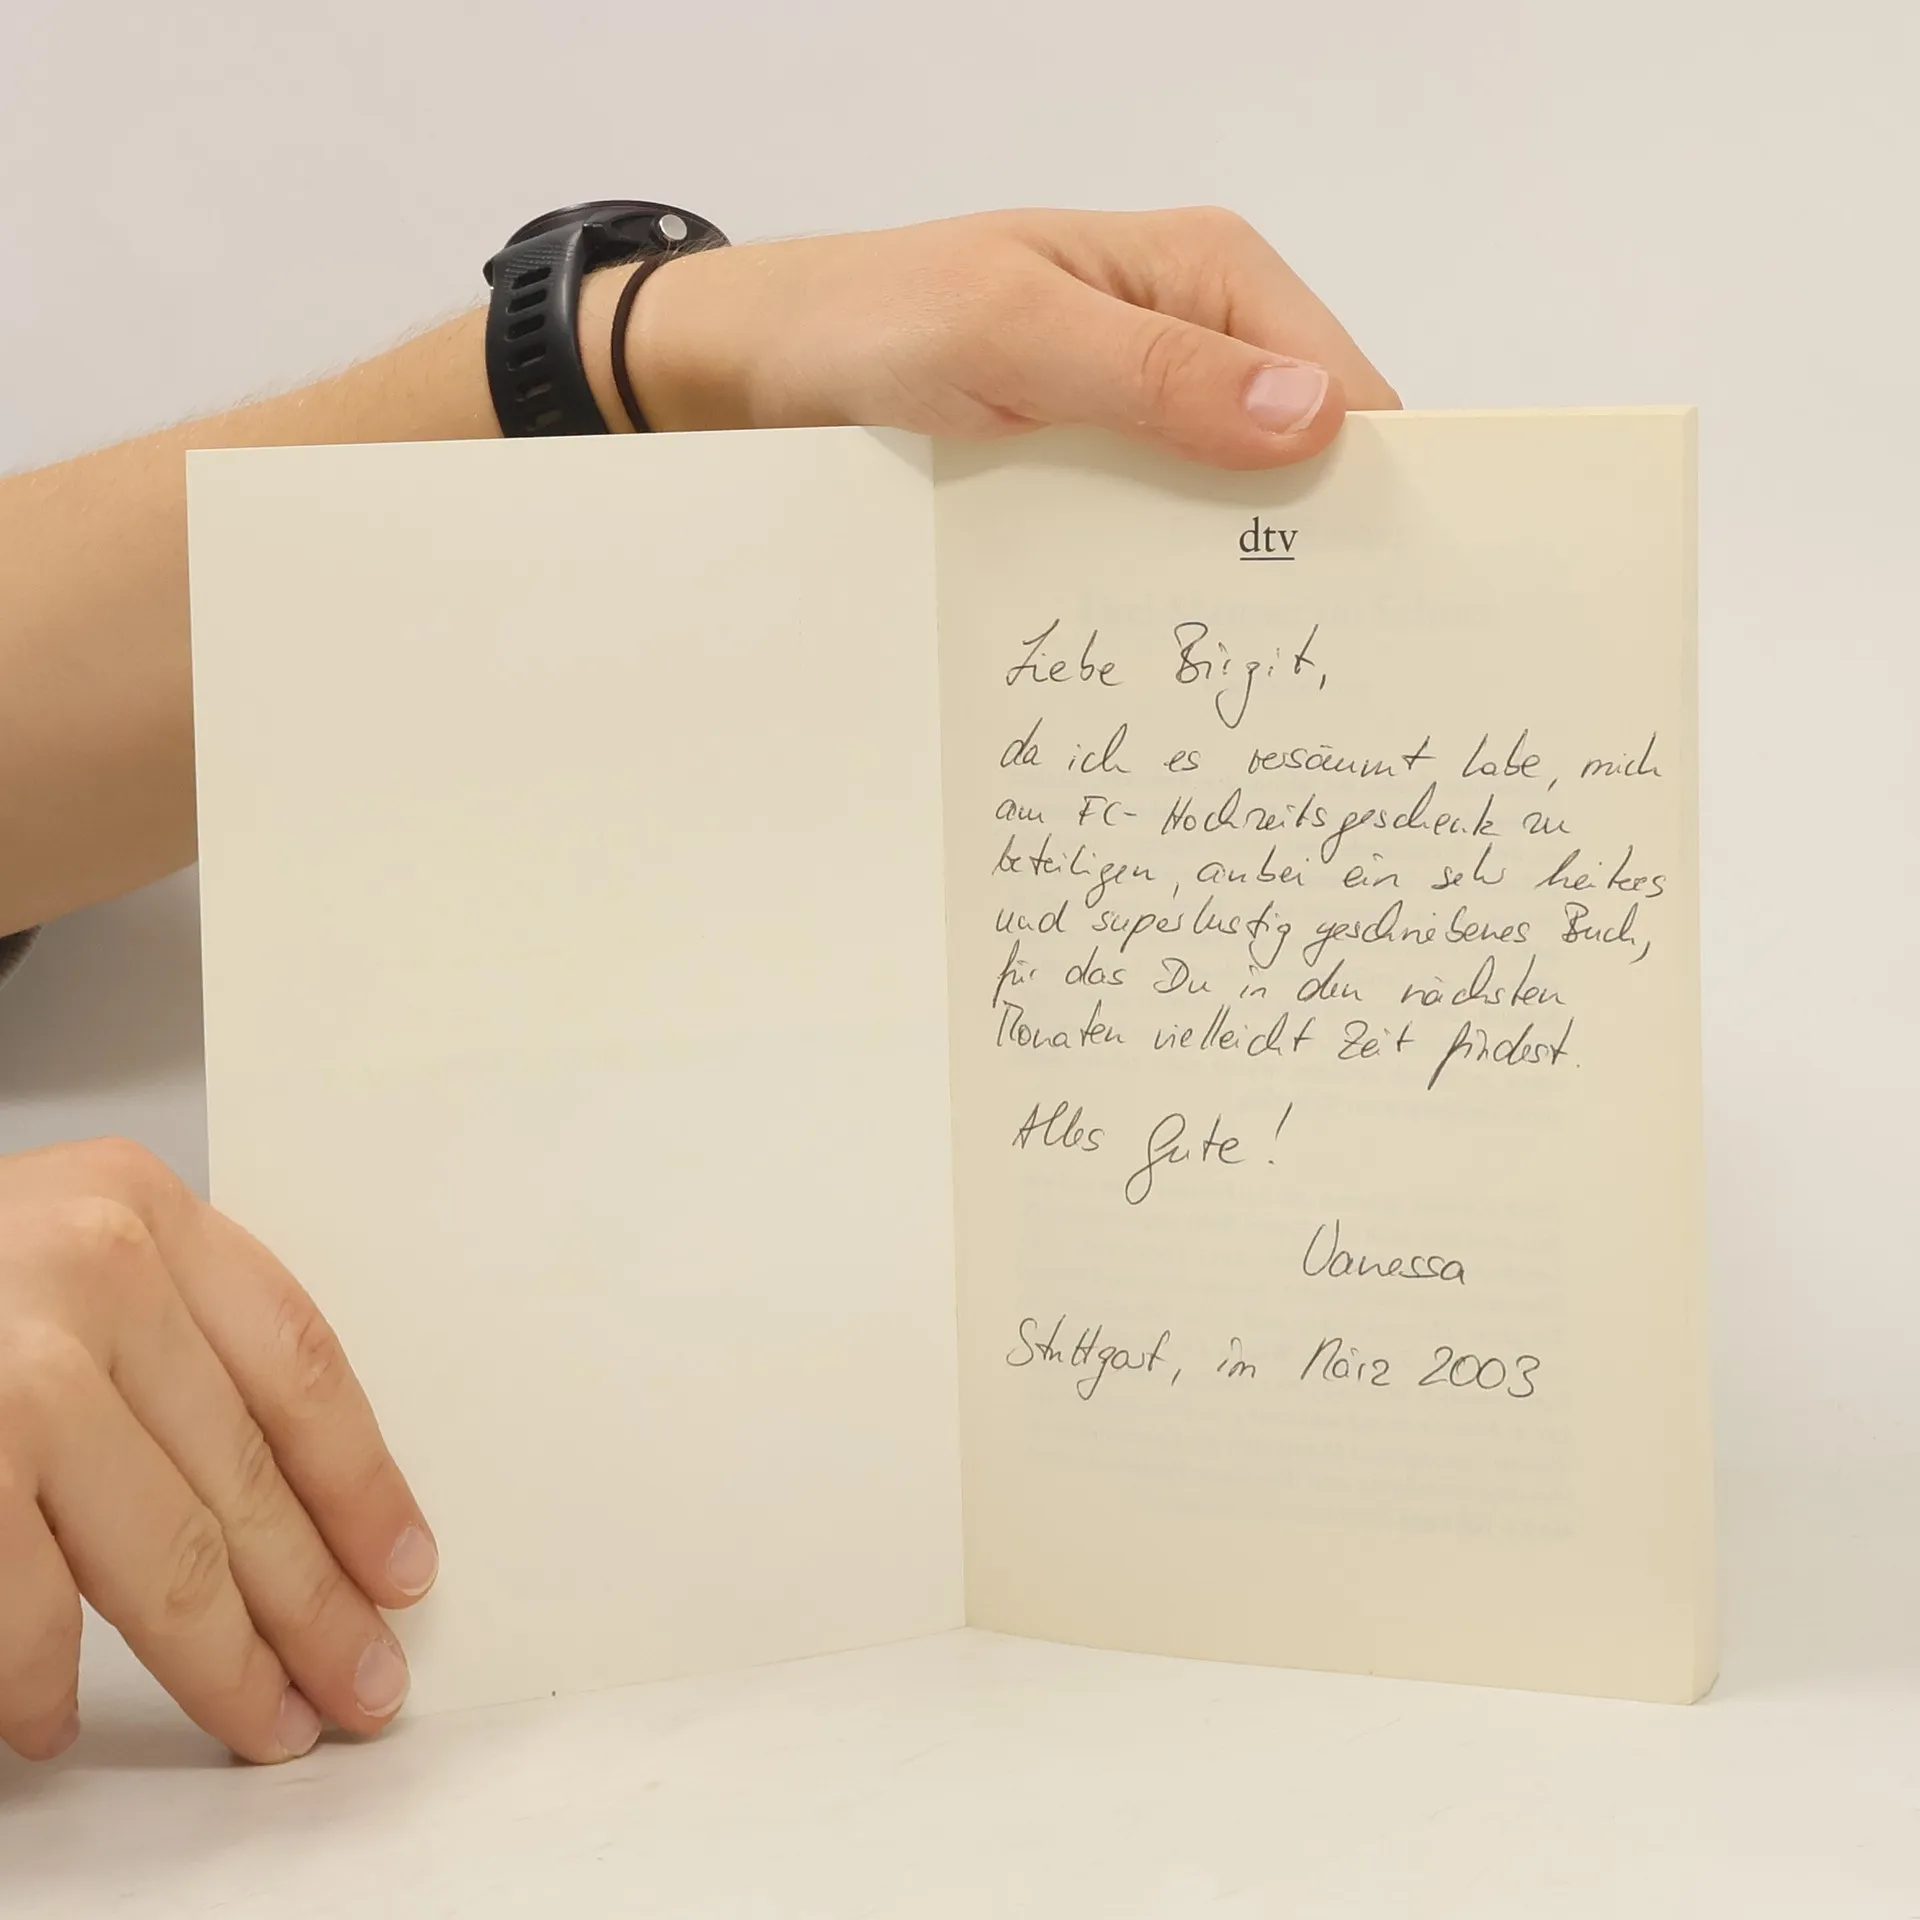 dtv
Liebe Birgit,
da ich es versäumt habe, mich
am FC-Hochzeitsgeschenk zu
beteiligen, anbei ein sehr heiteres
und superlustig geschriebenes Buch,
für das Du in den nächsten
Monaten vielleicht Zeit findest.
Alles Gute!
Vanessa
Stuttgart, im März 2003